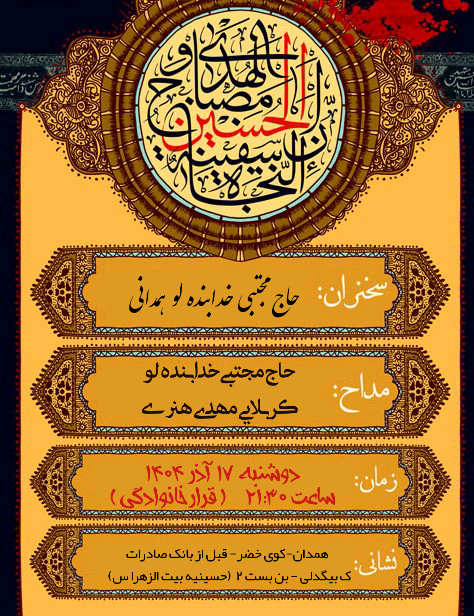 إن الحسين مصباح الهدی و سفینة النجاة
سخنران:
حاج مجتبی خدابنده لو همدانی
مداح:
حاج مجتبی خدابنده لو
کربلایی مهدی هنری
زمان:
دوشنبه ۱۷ آذر ۱۴۰۴
ساعت ۲۱:۳۰ (قرار خانوادگی)
نشانی:
همدان-کوی خضر- قبل از بانک صادرات
ک بیگدلی - بن بست ۲ (حسینیه بیت الزهرا س)